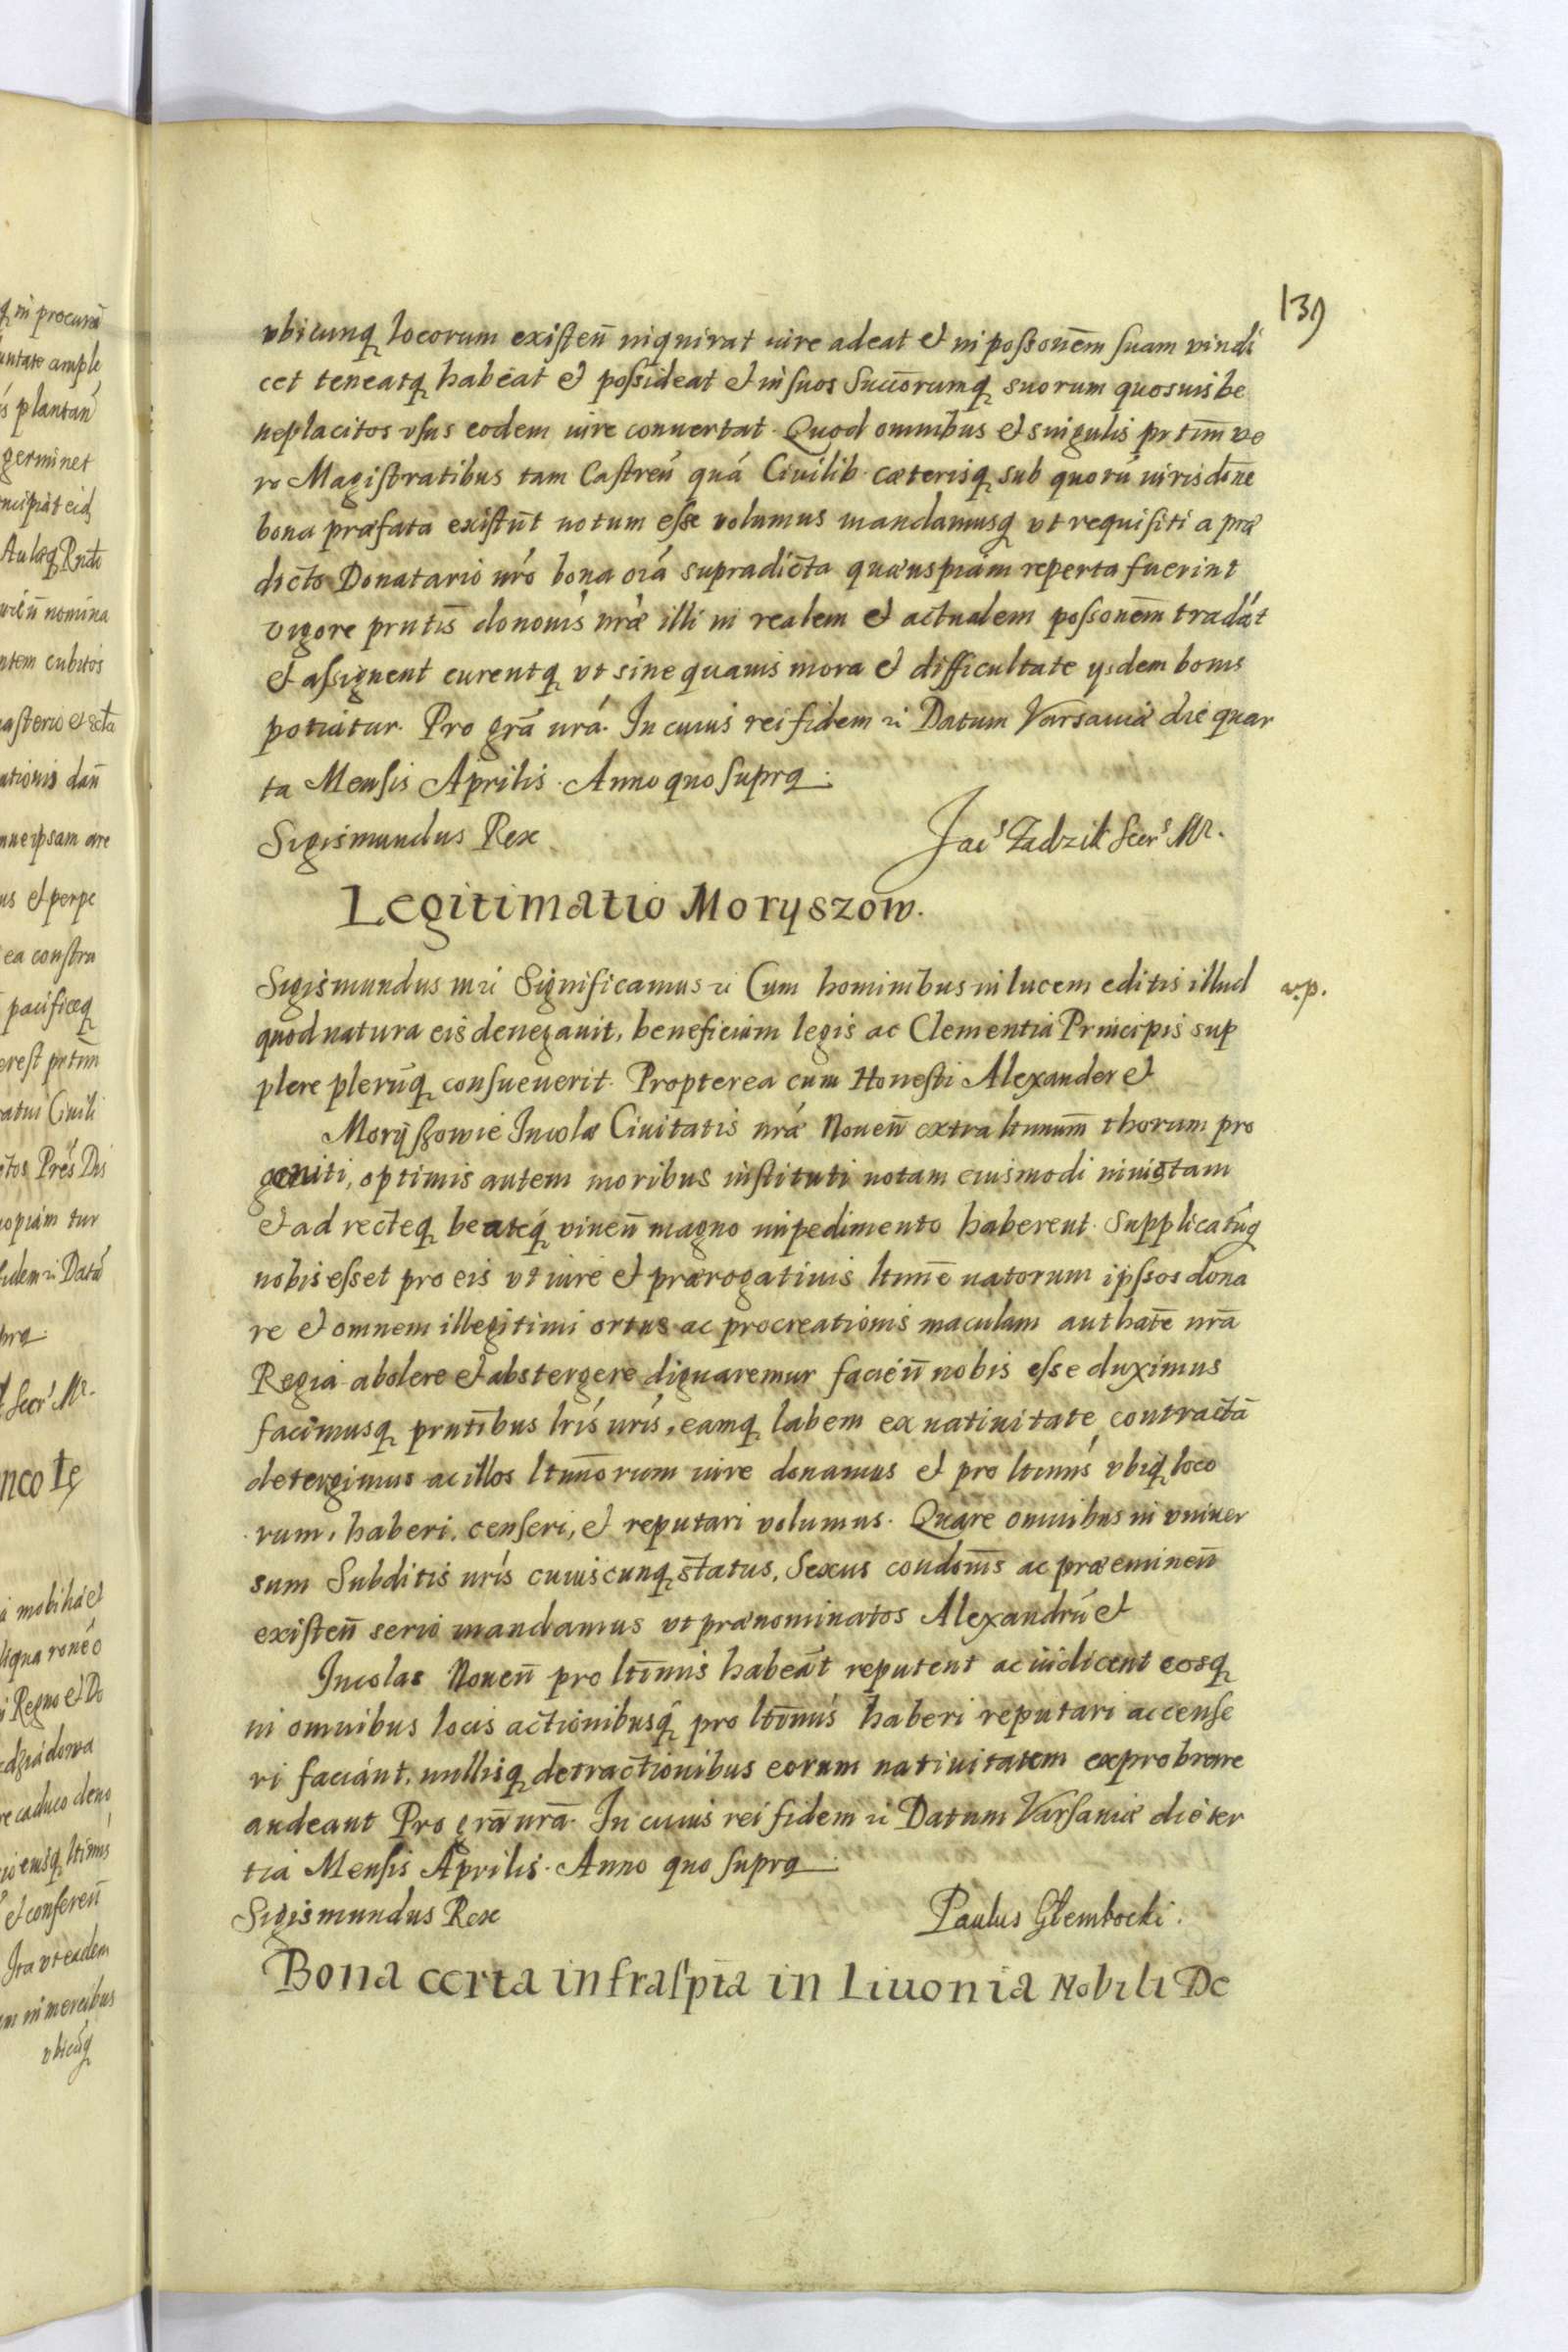 139
vbicunq locorum existen̄ inquirat iure adeat et in possonēm suam vindi
cet teneatq habeat et possideat et in suos Succorumq suorum quosuis be
neplacitos vsus eodem iure conuertat. Quod omnibus et singulis prtim̄ ve
ro Magistratibus tam Castreń quá Ciuilib. cæterisq sub quorú iurisdōne
bona præfata existūt notum esse volumus mandamusq vt requisiti a præ
dicto Donatario nró bona oiá supradicta quæuspiam reperta fuerint
vigore prntīs dononís nræ illi in realem et actualem possonēm tradát
et assignent curentq vt sine quauis mora et difficultate ysdem bonis
potiatur. Pro grā nrá. In cuius rei fidem ꝛi Datum Varsauiæ die quar
ta Mensis Aprilis. Anno quo supra.
Sigismundus Rex
Jac͛ Zadzik Secr͛ Mr.
Legitimatio Moryszow.
Sigismundus mꝛi Significamus ꝛi Cum hominibus in lucem editis illud
v.p.
quod natura eis denegauit, beneficium legis ac Clementia Principis sup
plere plerúq consueuerit. Propterea cum Honesti Alexander et
Morÿszowie Incolæ Ciuitatis nræ Nouen̄ extra ltimum̄ thorum pro
geniti, optimis autem moribus instituti notam eiusmodi iniustam
et ad recteq beateq́ viuen̄ magno impedimento haberent. Supplicatúq
nobis esset pro eis vt iure et prærogatiuis ltimē natorum ipsos dona
re et omnem illegitimi ortus ac procreationis maculam authatē nrā
Regia abolere et abstergere dignaremur facien̄ nobis esse duximus
facimusq prntībus lrís nrís, eamq labem ex natiuitate contractā
detergimus ac illos ltimōrum iure donamus et pro ltimis vbiq́ loco
rum, haberi, censeri, et reputari volumus. Quare omnibus in vniuer
sum Subditis nrís cuiuscunq status, Sexus condonīs ac præeminen̄
existen̄ serio mandamus vt prænominatos Alexandrú et
Incolas Nouen̄ pro ltīmis habeāt reputent ac iudicent eosq
in omnibus locis actionibusq́ pro ltīmis haberi reputari accense
ri faciánt, nullisq detractionibus eorum natiuitatem exprobrare
audeant Pro grā nrā. In cuius rei fidem ꝛi Datum Varsauiæ die ter
tia Mensis Aprilis. Anno quo supra.
Sigismundus Rex
Paulus Głembocki.
Bona certa infrasp̄ta in Liuonia Nobili De